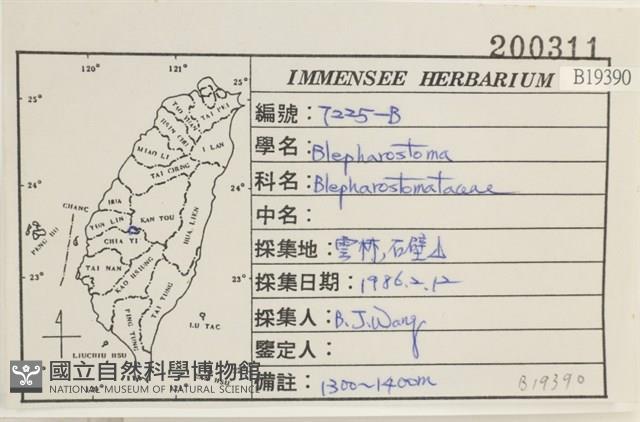 200311
IMMENSEE HERBARIUM
B19390
編號：7225-B
學名：Blepharostoma
科名：Blepharostomataceae
中名：
採集地：雲林,石壁山
採集日期：1986.2.12
採集人：B.J.Wang
鑒定人：
備註：1300~1400m
B19390
120° 121°
25° 25°
TAI PEI
TAO YUAN
HSIN CHU
I LAN
MIAO LI
TAI CHUNG
24° 24°
CHANG
HUA
KAN TOU
HUA LIEN
YUN LIN
PENG HU
CHIA YI
TAI NAN
KAO HSIUNG
23° 23°
TAI TUNG
PING TUNG
LU TAO
LIUCHIU HSU
國立自然科學博物館
NATIONAL MUSEUM OF NATURAL SCIENCE